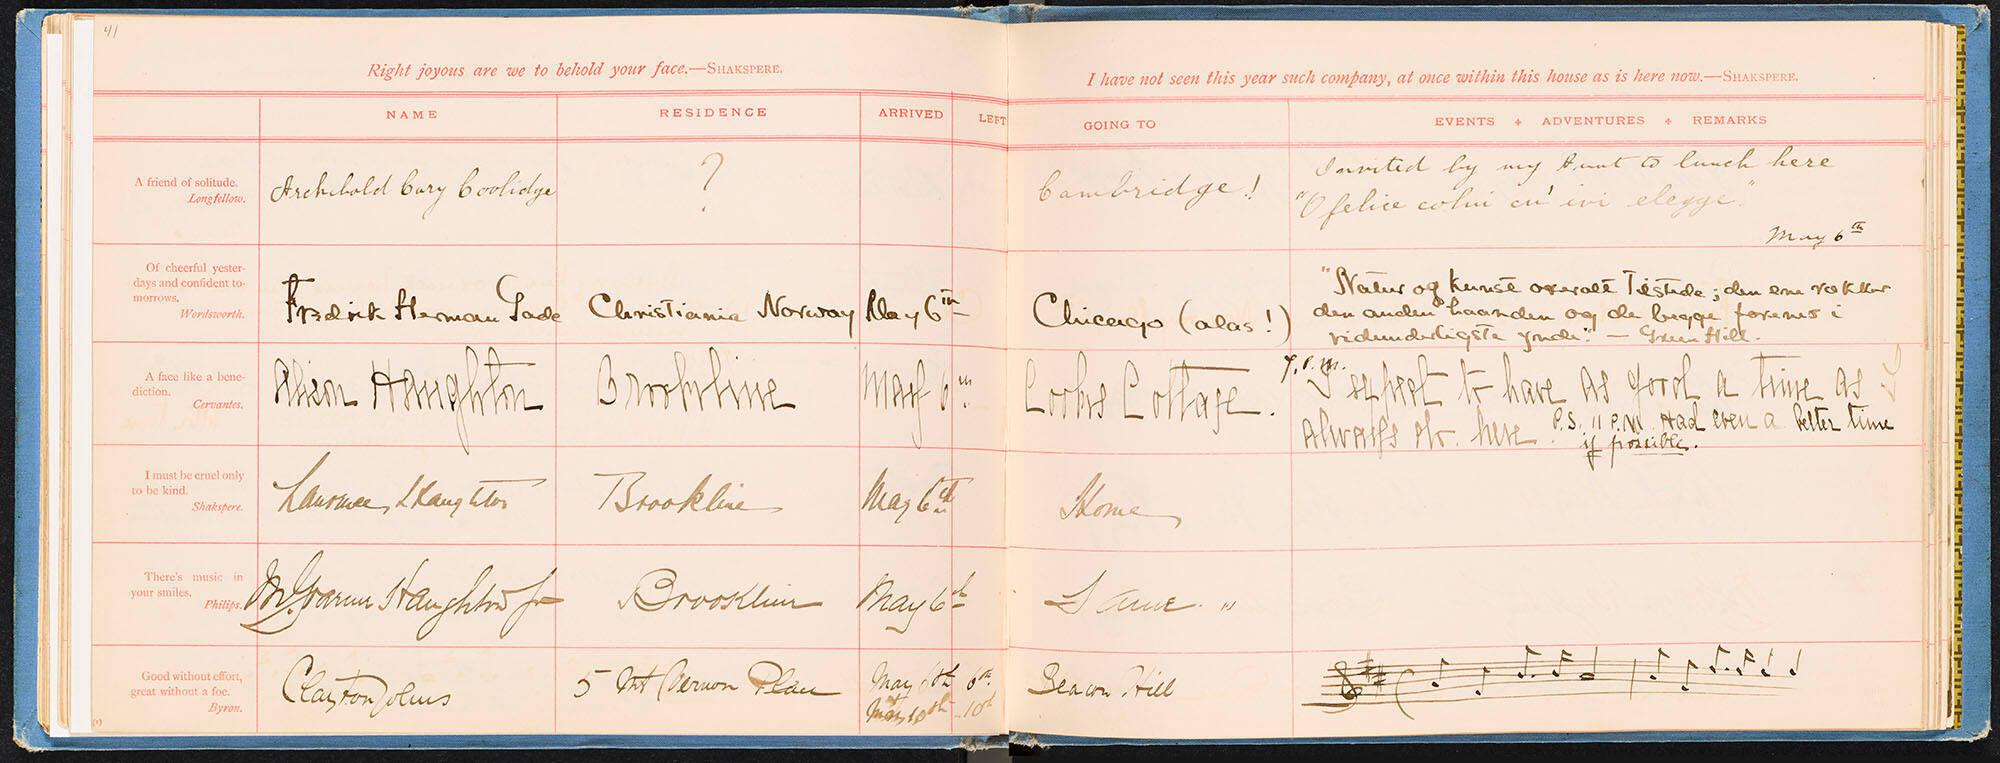 41
Right joyous are we to behold your face.—SHAKSPERE.
NAME RESIDENCE ARRIVED LEFT
A friend of solitude.
Longfellow.
Archibald Cary Coolidge ?
Of cheerful yester-
days and confident to-
morrows.
Wordsworth.
Fredrik Herman Gade Christiania Norway May 6th
A face like a bene-
diction.
Cervantes.
Alison Haughton Brookline May 6th
I must be cruel only
to be kind.
Shakspere.
Laurence Haughton Brookline May 6th
There's music in
your smiles.
Philips.
M. Graeme Haughton Jr Brookline May 6th
Good without effort,
great without a foe.
Byron.
Clayton Johns 5 Mt Vernon Place May 6th 6th.
May 10th 10th
(1)
I have not seen this year such company, at once within this house as is here now.—SHAKSPERE.
GOING TO EVENTS + ADVENTURES + REMARKS
Cambridge! Invited by my Aunt to lunch here
"O felice colui cu' ivi elegge."
May 6th
Chicago (alas!) "Natur og Kunst overalt tilstede; den ene rækker
den anden haanden og de begge forenes i
vidunderligste ynde." — Green Hill.
Cooks Cottage. 7. P.M. I expect to have as good a time as
always at here. P.S. 11 P.M. Had even a better time
if possible.
Home
Same "
Beacon Hill